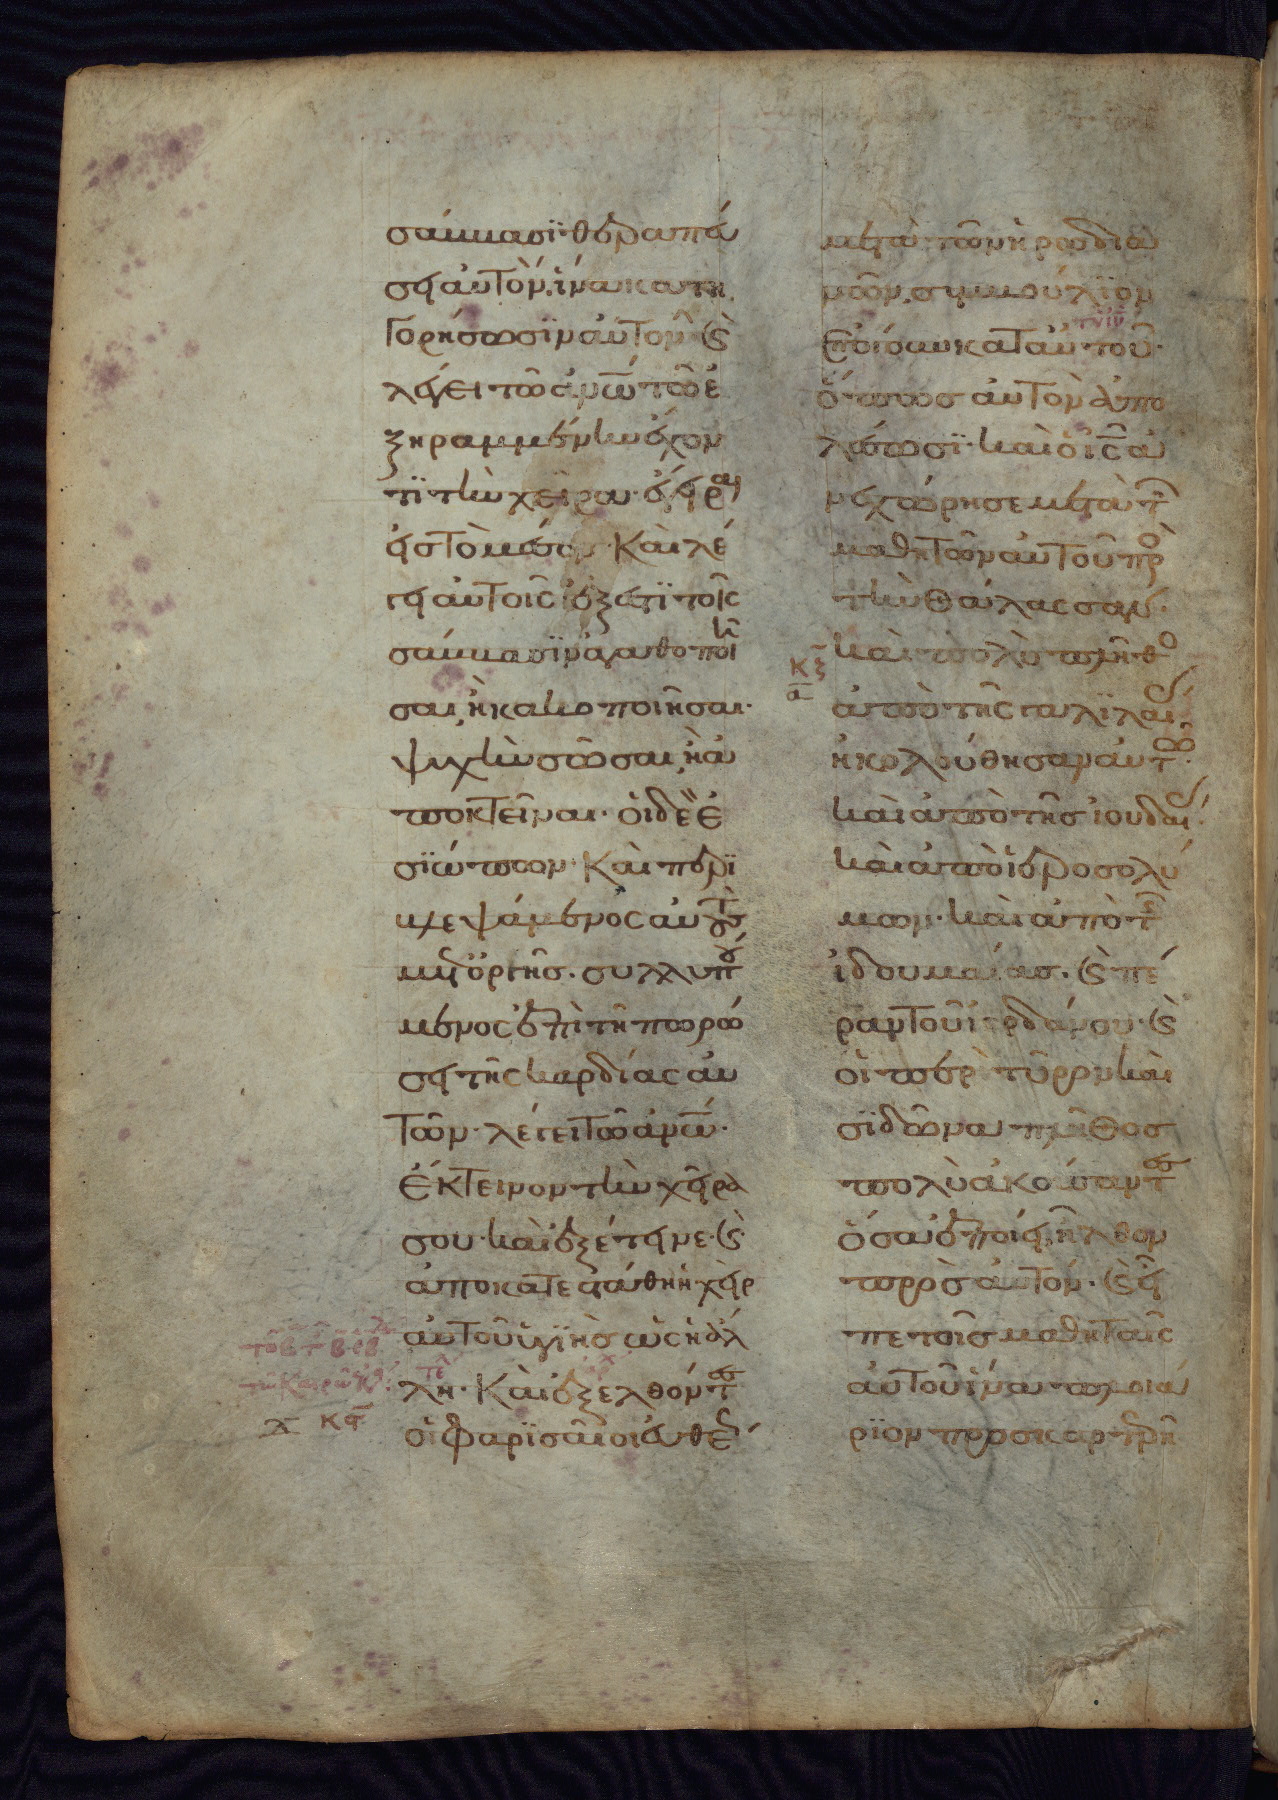 σάμμασϊ· θεραπεύ
σει αὐτὸν, ἵνα κατη
γορήσωσϊν αὐτοῦ· (καὶ)
λέγει τῶ ἀνω τῶ ἐ
ξηραμμένην ἔχον
τϊ τὴν χεῖρα· ἔγειραι
εἰς τὸ μέσον· Καὶ λέ
γει αὐτοῖς ἔξεστϊ τοῖς
σάμμασϊν ἀγαθοποιῆ
σαι, ἢ κακοποιῆσαι·
ψυχὴν σῶσαι, ἢ ἀ
ποκτεῖναι· οἱ δὲ ἐ
σϊώπων· Καὶ περϊ
βλεψάμενος αὐτοὺς
μετ' ὀργῆς· συλλυπού
μενος ἐπὶ τῆ πωρώ
σει τῆς καρδίας αὐ
τῶν· λέγει τῶ ἀνω·
ἔκτεινον τὴν χεῖρά
σου· καὶ ἐξέτεινε· (καὶ)
ἀποκατεστάθη ἡ χεὶρ
αὐτοῦ ὑγϊὴς ὡς ἡ ἄλ
λη· Καὶ ἐξελθόντες
οἱ φαρϊσαῖοι εὐθέως
κϛ
μετὰ τῶν ἡρωδια
νῶν, συμβούλϊον
ἐποίουν κατ' αὐτοῦ·
ὅπως αὐτὸν ἀπο
λέσωσϊ· καὶ ὁ ις ἀ
νεχώρησε μετὰ τῶν
μαθητῶν αὐτοῦ πρὸς
τὴν θάλασσαν·
κζ
α
καὶ πολὺ πλῆθος
ἀπὸ τῆς γαλϊλαίας
ἠκολούθησαν αὐτῶ·
καὶ ἀπὸ τῆς ἰουδαίας·
καὶ ἀπὸ ἱεροσολύ
μων· καὶ ἀπὸ τῆς
ἰδουμαίας· (καὶ) πέ
ραν τοῦ ἰορδάνου· (καὶ)
οἱ περὶ τύρον καὶ
σϊδῶνα πλῆθος
πολὺ ἀκούσαντες
ὅσα ἐποίει, ἦλθον
πρὸς αὐτόν· (καὶ) εἶ
πε τοῖς μαθηταῖς
αὐτοῦ ἵνα πλοιά
ρϊον προσκαρτερῆ